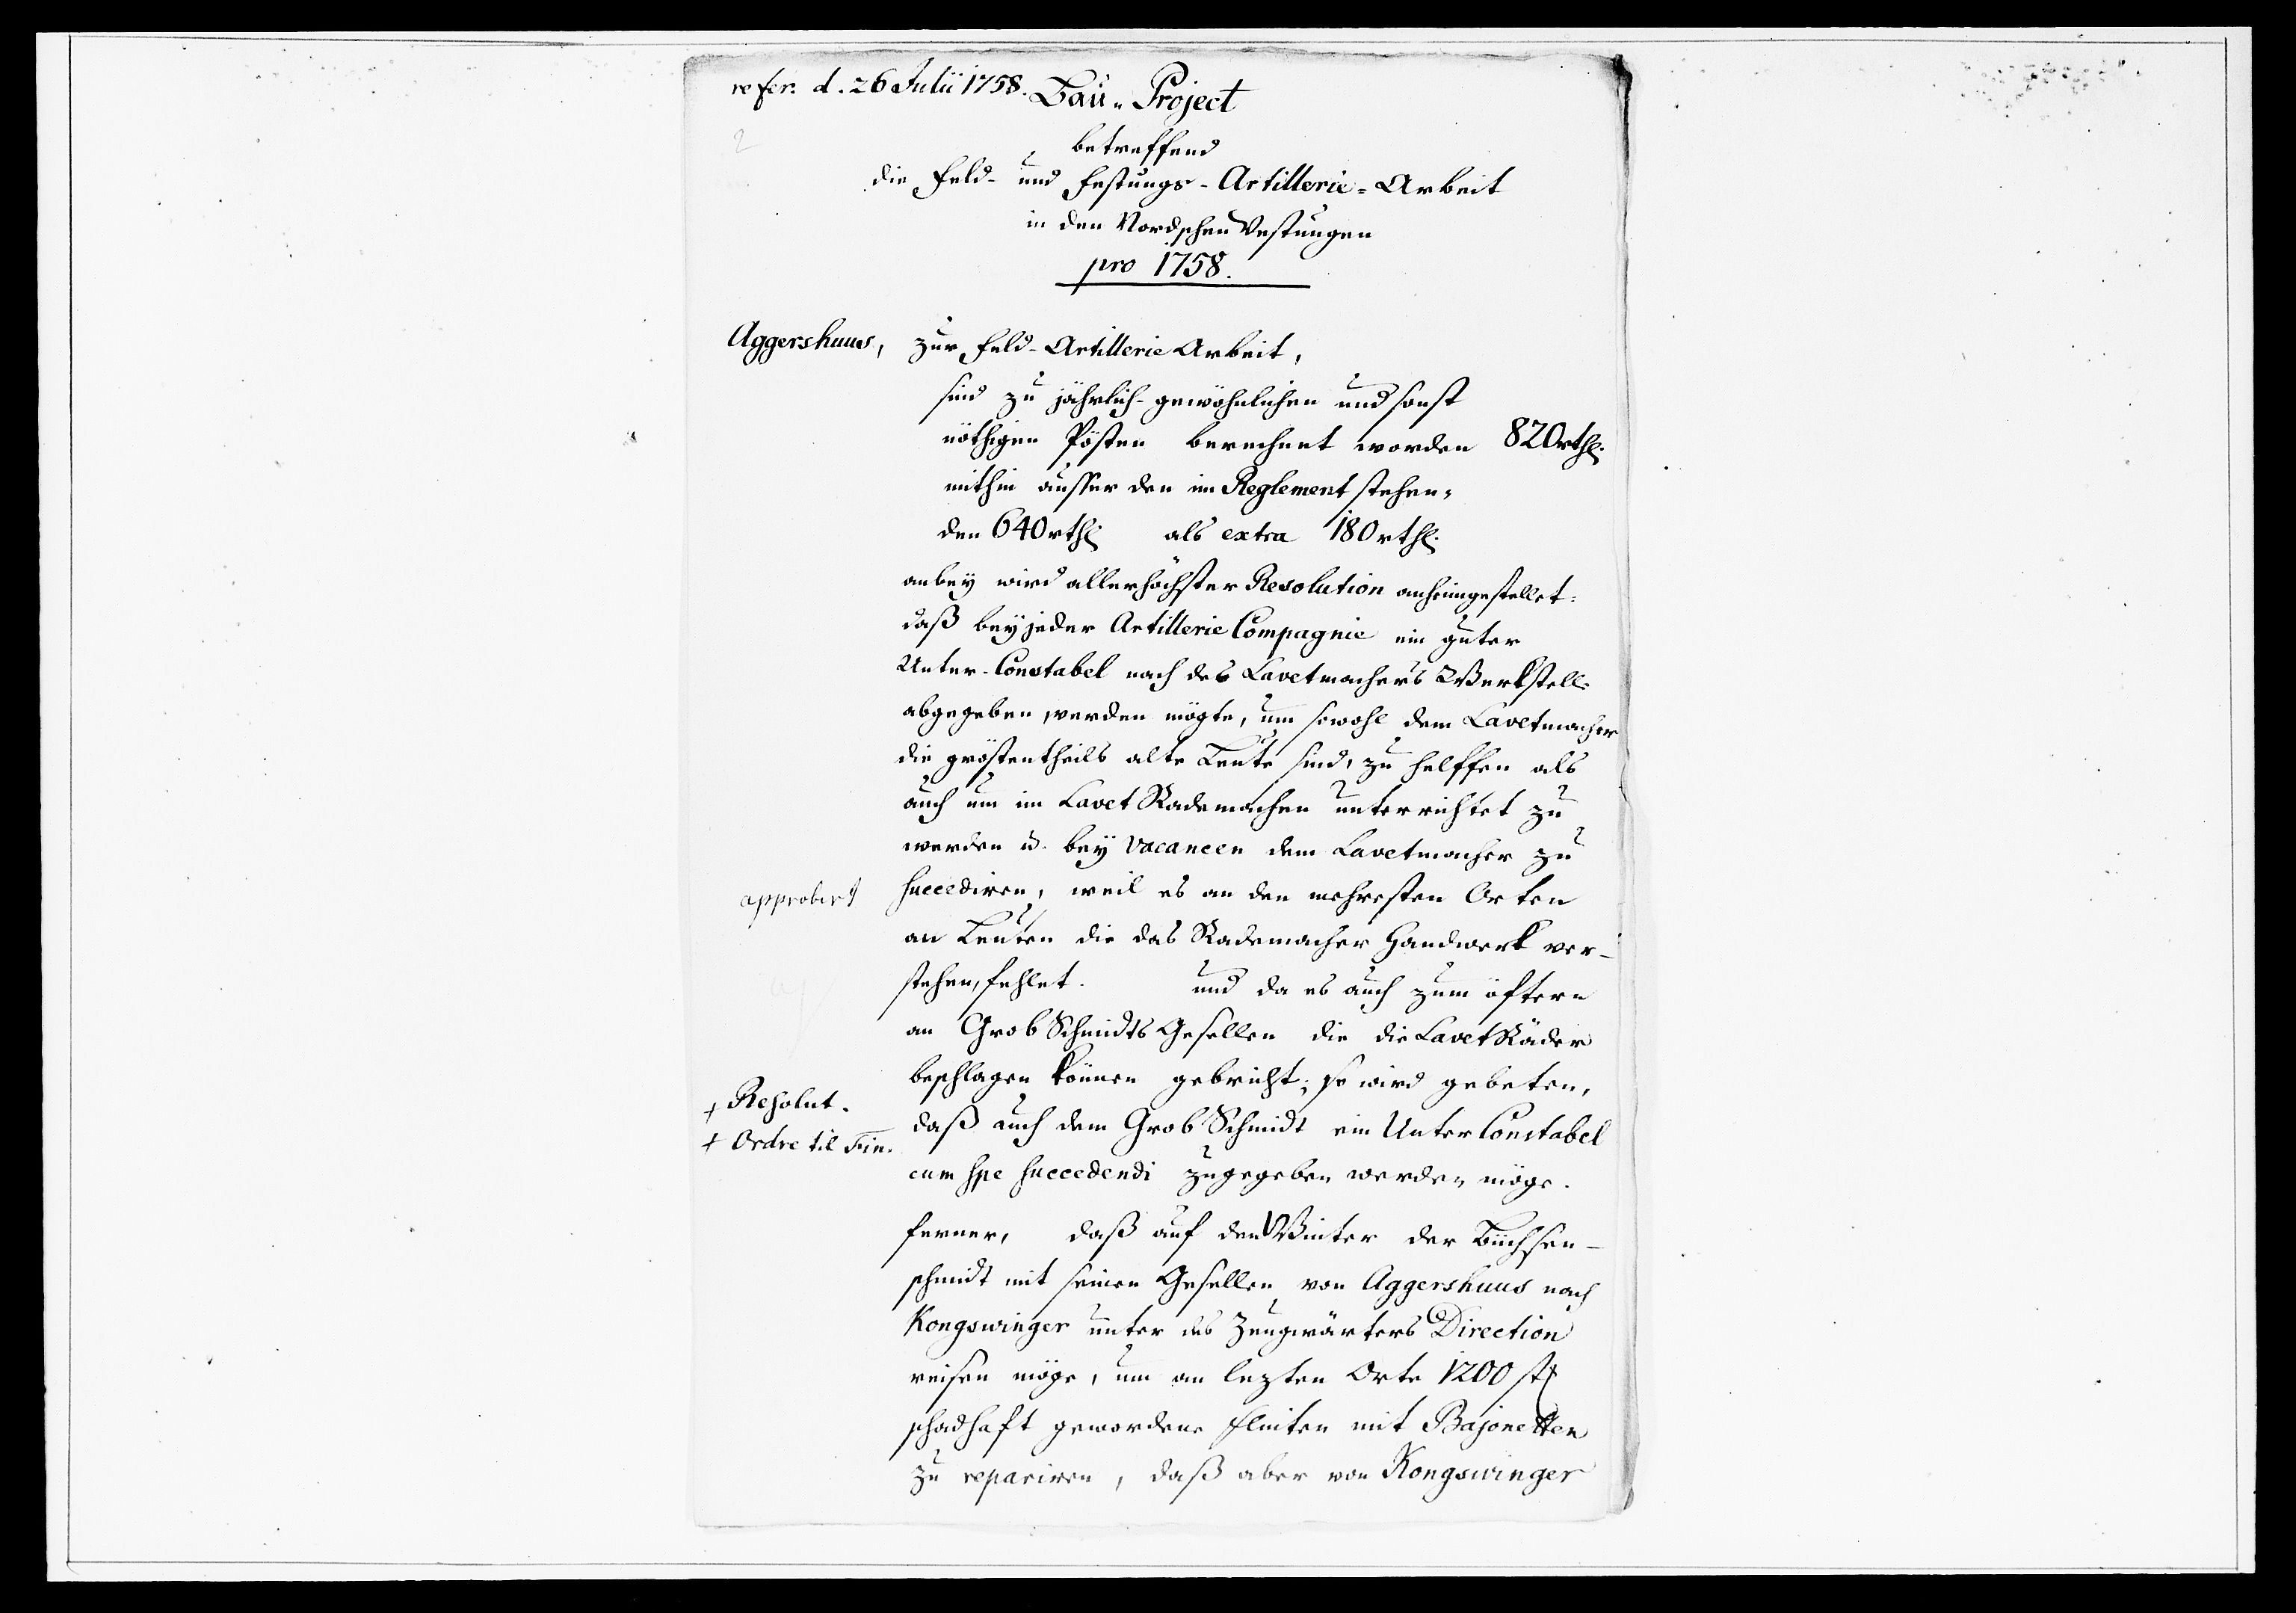 refer. d. 26 Julii 1758.
Bau- Project
2
betreffend
die Feld- und Festungs-Artillerie-Arbeit
in den Nordschen Vestungen
pro 1758.
Aggershuus, zur Feld-Artillerie Arbeit,
sind zu jährlich-gewöhnlichen und sonst
nöthigen Pösten berechnet worden 820 rthl.
mithin ausser den im Reglement stehen-
den 640 rthl. als extra 180 rthl.
anbey wird allerhöchster Resolution anheimgestellet:
daß bey jeder Artillerie Compagnie ein guter
Unter-Constabel nach des Lavetmachers Werkstell
abgegeben werden mögte, um sowohl dem Lavetmacher
die gröstentheils alte Leute sind, zu helffen als
auch um im Lavet Rademachen unterrichtet zu
werden u. bey vacancen dem Lavetmacher zu
approbirt
succediren, weil es an den mehresten Orten
an Leuten die das Rademacher Handwerk ver-
stehen, fehlet. und da es auch zum öftern
an Grob Schmidts Gesellen die die Lavet Räder
beschlagen können gebricht; so wird gebeten,
+ Resolut.
daß auch dem Grob Schmidt ein Unter Constabel
+ Ordre til Fin.
cum spe succedendi zugegeben werden möge.
ferner, daß auf den Winter der Büchsen-
schmidt mit seinen Gesellen von Aggershuus nach
Kongswinger unter des Zeugwärters Direction
reisen möge, um an lezten Orte 1200 st
schadhaft gewordene Flinten mit Bajonetten
zu repariren, daß aber von Kongswinger